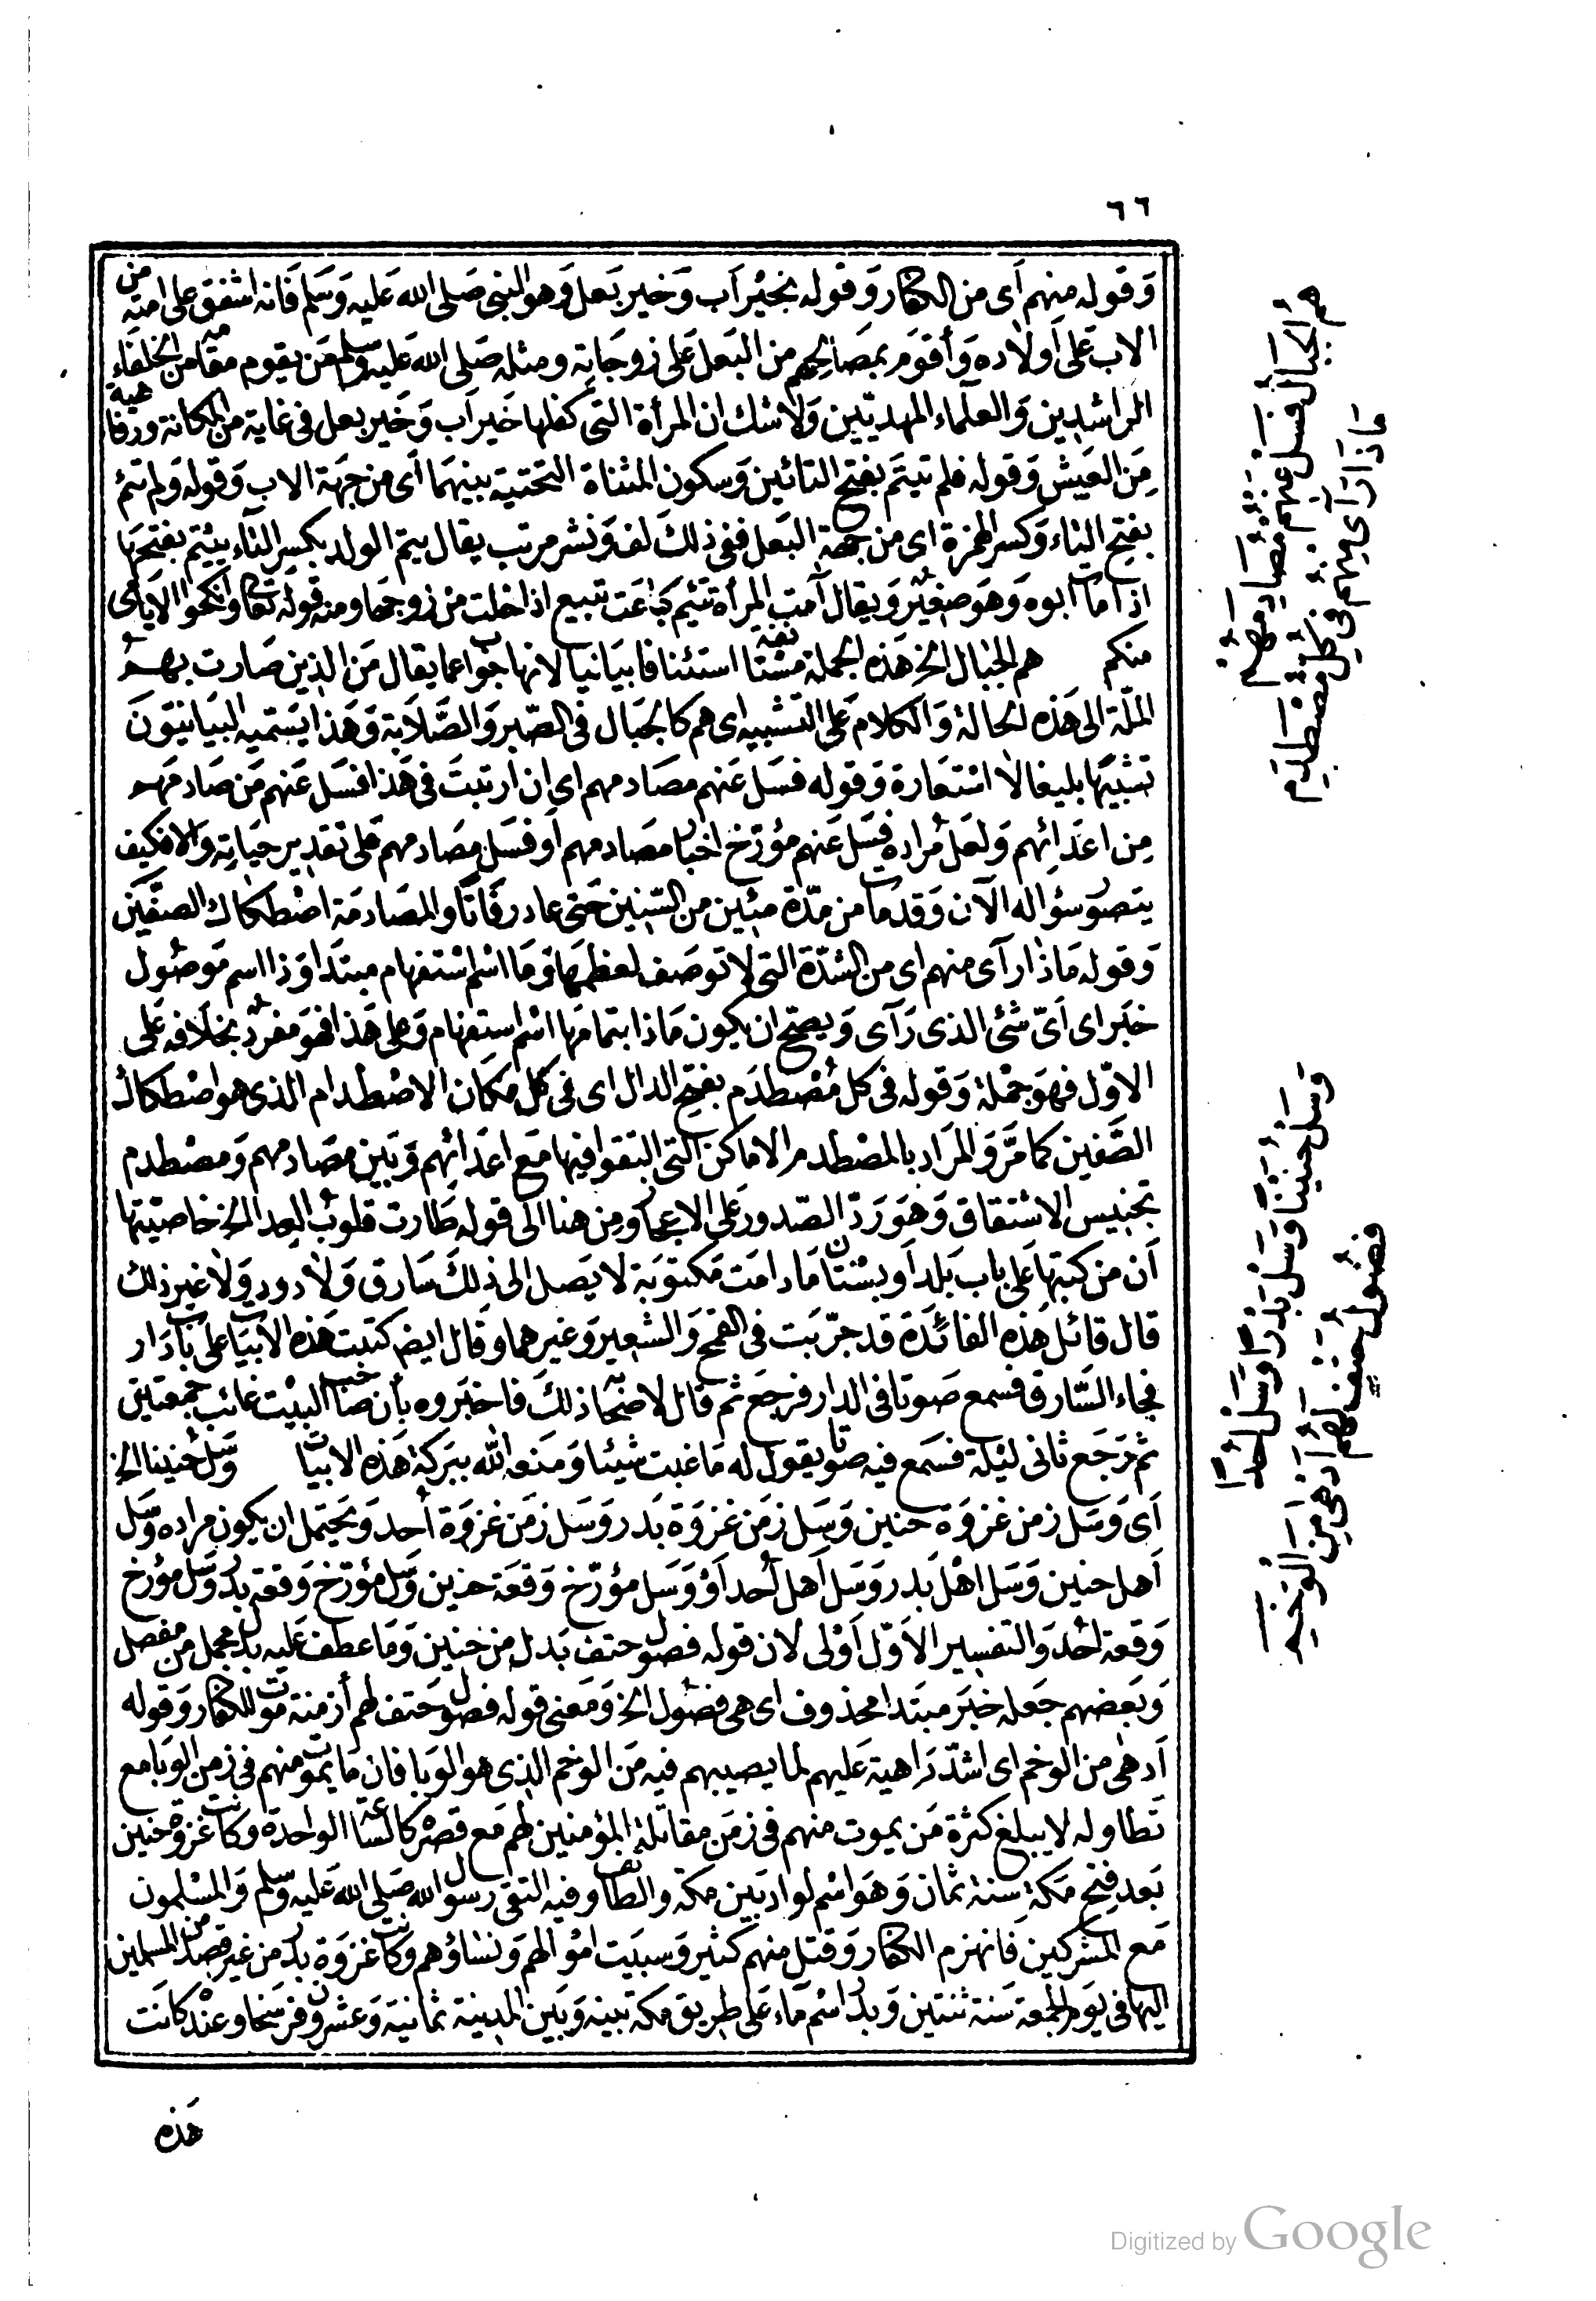 ٦٦
وَقوله منهم أى من الكفار وَقوله بخير أب وَخير بَعل وَهو النبى صَلى الله عَليه وَسَلم فَانه اشفق على امته من
الاب عَلى أولاده وَأقوَم بمصَالحهم من البَعل عَلى زوجَاته ومثله صَلى الله عَليه وسلم مَن يقوم مقامه من الخلفاء
الراشدِين وَالعلَماء المهديّين وَلا شك ان المرأة التى كفلها خَير أب وَخَير بعل فى غاية من المكانة ورفاهية
مِن العَيش وَقوله فلم تيتَم بفتح التائين وَسكون المثناة التحتية بينهمَا أى من جهَة الاب وَقوله وَلم تئم
بفتح التاء وَكسر الهمزة اى من جهَة البَعل ففى ذلكَ لف وَنشر مرتب يقال يتم الولد بكسر التاء ييتم بفتحها
اذا مات ابوه وَهوَ صغير وَيقال آمت المرأة تئيم كبَاعَت تبيع اذا خلت من زوجها ومنه قوله تعالى وانكحوا الايامى
منكم هم الجبال الخ هَذه الجملة مستأنفة استئنافا بيَانيا لانها جواب عما يقال مَن الذين صَارت بهم
الملّة الى هَذه الحالة وَالكلام عَلى التشبيه اى هم كالجبَال فى الصّبر وَالصَّلَابَة وَهَذا يَسَمّيه البيَانيّونَ
تشبيهًا بليغا لا استعَارة وَقوله فسَل عَنهم مصَادمهم اى ان ارتبتَ فى هَذا فسَل عَنهم مَن صَادمَهم
مِن اعدَائهم وَلعَل مُراده فسَل عَنهم مؤرّخ اخبار مصَادمهم أو فسَل مصَادمهم عَلى تقدير حيَاته وَالا فكيف
يتصَور سؤاله الآن وَقد مات من مدّة مئين من السّنين حَتى عاد رفَاتًا والمصَادمَة اصْطكاك الصفّين
وَقوله مَاذا رآى منهم اى من الشدّة التى لا توصَف لعظمهَا وَمَا اسْم اسْتفهام مبتدَا وَذا اسم مَوصُول
خبَر اى أىّ شئ الذى رَآى وَيصحّ ان يكون مَاذا بتمامهَا اسْم استفهام وَعلى هَذا فهوَ مفردٌ بخلَافه عَلى
الاوّل فهوَ جمْلة وَقوله فى كل مُصْطدَم بفتح الدال اى فى كل مكَان الاصْطدام الذى هو اصْطكاك
الصَّفين كما مَرَّ وَالمرَاد بالمصْطدم الاماكن التى التقوا فيها مَع اعدَائهم وَبَين مصَادمهم وَمصْطدم
تجنيس الاشتقاق وَهوَ رَدّ الصّدور عَلى الاعجاز ومِن هنا الى قوله طَارت قلوبُ العدا الخ خاصّيتها
أن من كتبها عَلى باب بَلد أو بستان مَا دامَت مَكتوبَة لا يَصل الى ذلِكَ سَارق وَلا دود وَلا غير ذلك
قال قائل هَذه الفائدَة قد جرّبَت فى القمح وَالشعير وَغيرهما وقال ايضًا كتبت هَذه الابيات على باب دَار
فجاء السَّارق فسمع صَوتا فى الدار فرجَع ثم قال لاصحَابه ذلكَ فاخبَروه بأن صاحب البيْت غائب جمعتين
ثم رَجَع ثانى ليْلة فسَمع فيه صوتا يقول له مَا غبت شيئا وَمنعه الله ببَركة هَذه الابيات وَسَل حُنينا الخ
أى وَسَل زمن غزوَة حنين وَسَل زمَن غزوَة بَدر وَسَل زمَن غزوَة أحد وَيحتمل ان يكون مراده وَسَل
أهل حنين وَسَل اهْل بَدر وَسَل أهل أحد أوْ وَسَل مؤرّخ وَقعَة حنين وَسَل مؤرّخ وَقعة بدر وَسَل مؤرخ
وَقعة احُد وَالتفسِير الأوّل أوْلى لان قوله فصول حتف بَدل من حنين وَمَا عطف عَليه بدل مجمل من مفصل
وَبَعضهم جَعله خبَر مبتَدا محذوف اى هى فصُول الخ وَمَعنى قوله فصول حَتف لهم أزمنة موت للكفار وَقوله
أدهَى من الوخم اى اشدّ دَاهية عَليهم لما يصيبهم فيه مَن الوخم الذى هو الوَبا فان مَا يموت منهم فى زمن الوبا مع
تَطاوله لا يبلغ كثرة مَن يموت منهم فى زمَن مقاتلة المؤمنين لهم مَع قصره كالساعة الواحدة وكانت غزوة حنين
بَعد فتح مَكة سنة ثمان وَهوَ اسْم لواد بَين مكة والطائف وفيه التقى رسول الله صَلى الله عَليه وسلم وَالمسْلمون
مَع المشركين فَانهزم الكفار وَقتل منهم كثير وَسبيَت امْوالهم وَنسَاؤهم وكانت غزوَة بدر من غير قصد من المسلمين
اليها فى يَوم الجمعة سَنة ثنتين وَبدر اسْم مَاء عَلى طريق مكة بينه وَبَين المدينة ثمانيَة وَعشرون فرسَخا وعنده كانَت
هَذه
هم الجبال فسَل عنهم مُصَادِمَهُم
مَاذا رَآى منهم فى كلّ مُصْطدَمِ
وَسَل حُنَينًا وَسَلْ بَدْرًا وَسَلْ أُحُدًا
فصُولُ حَتْفٍ لهُم أدْهَى مِن الوَخَمِ